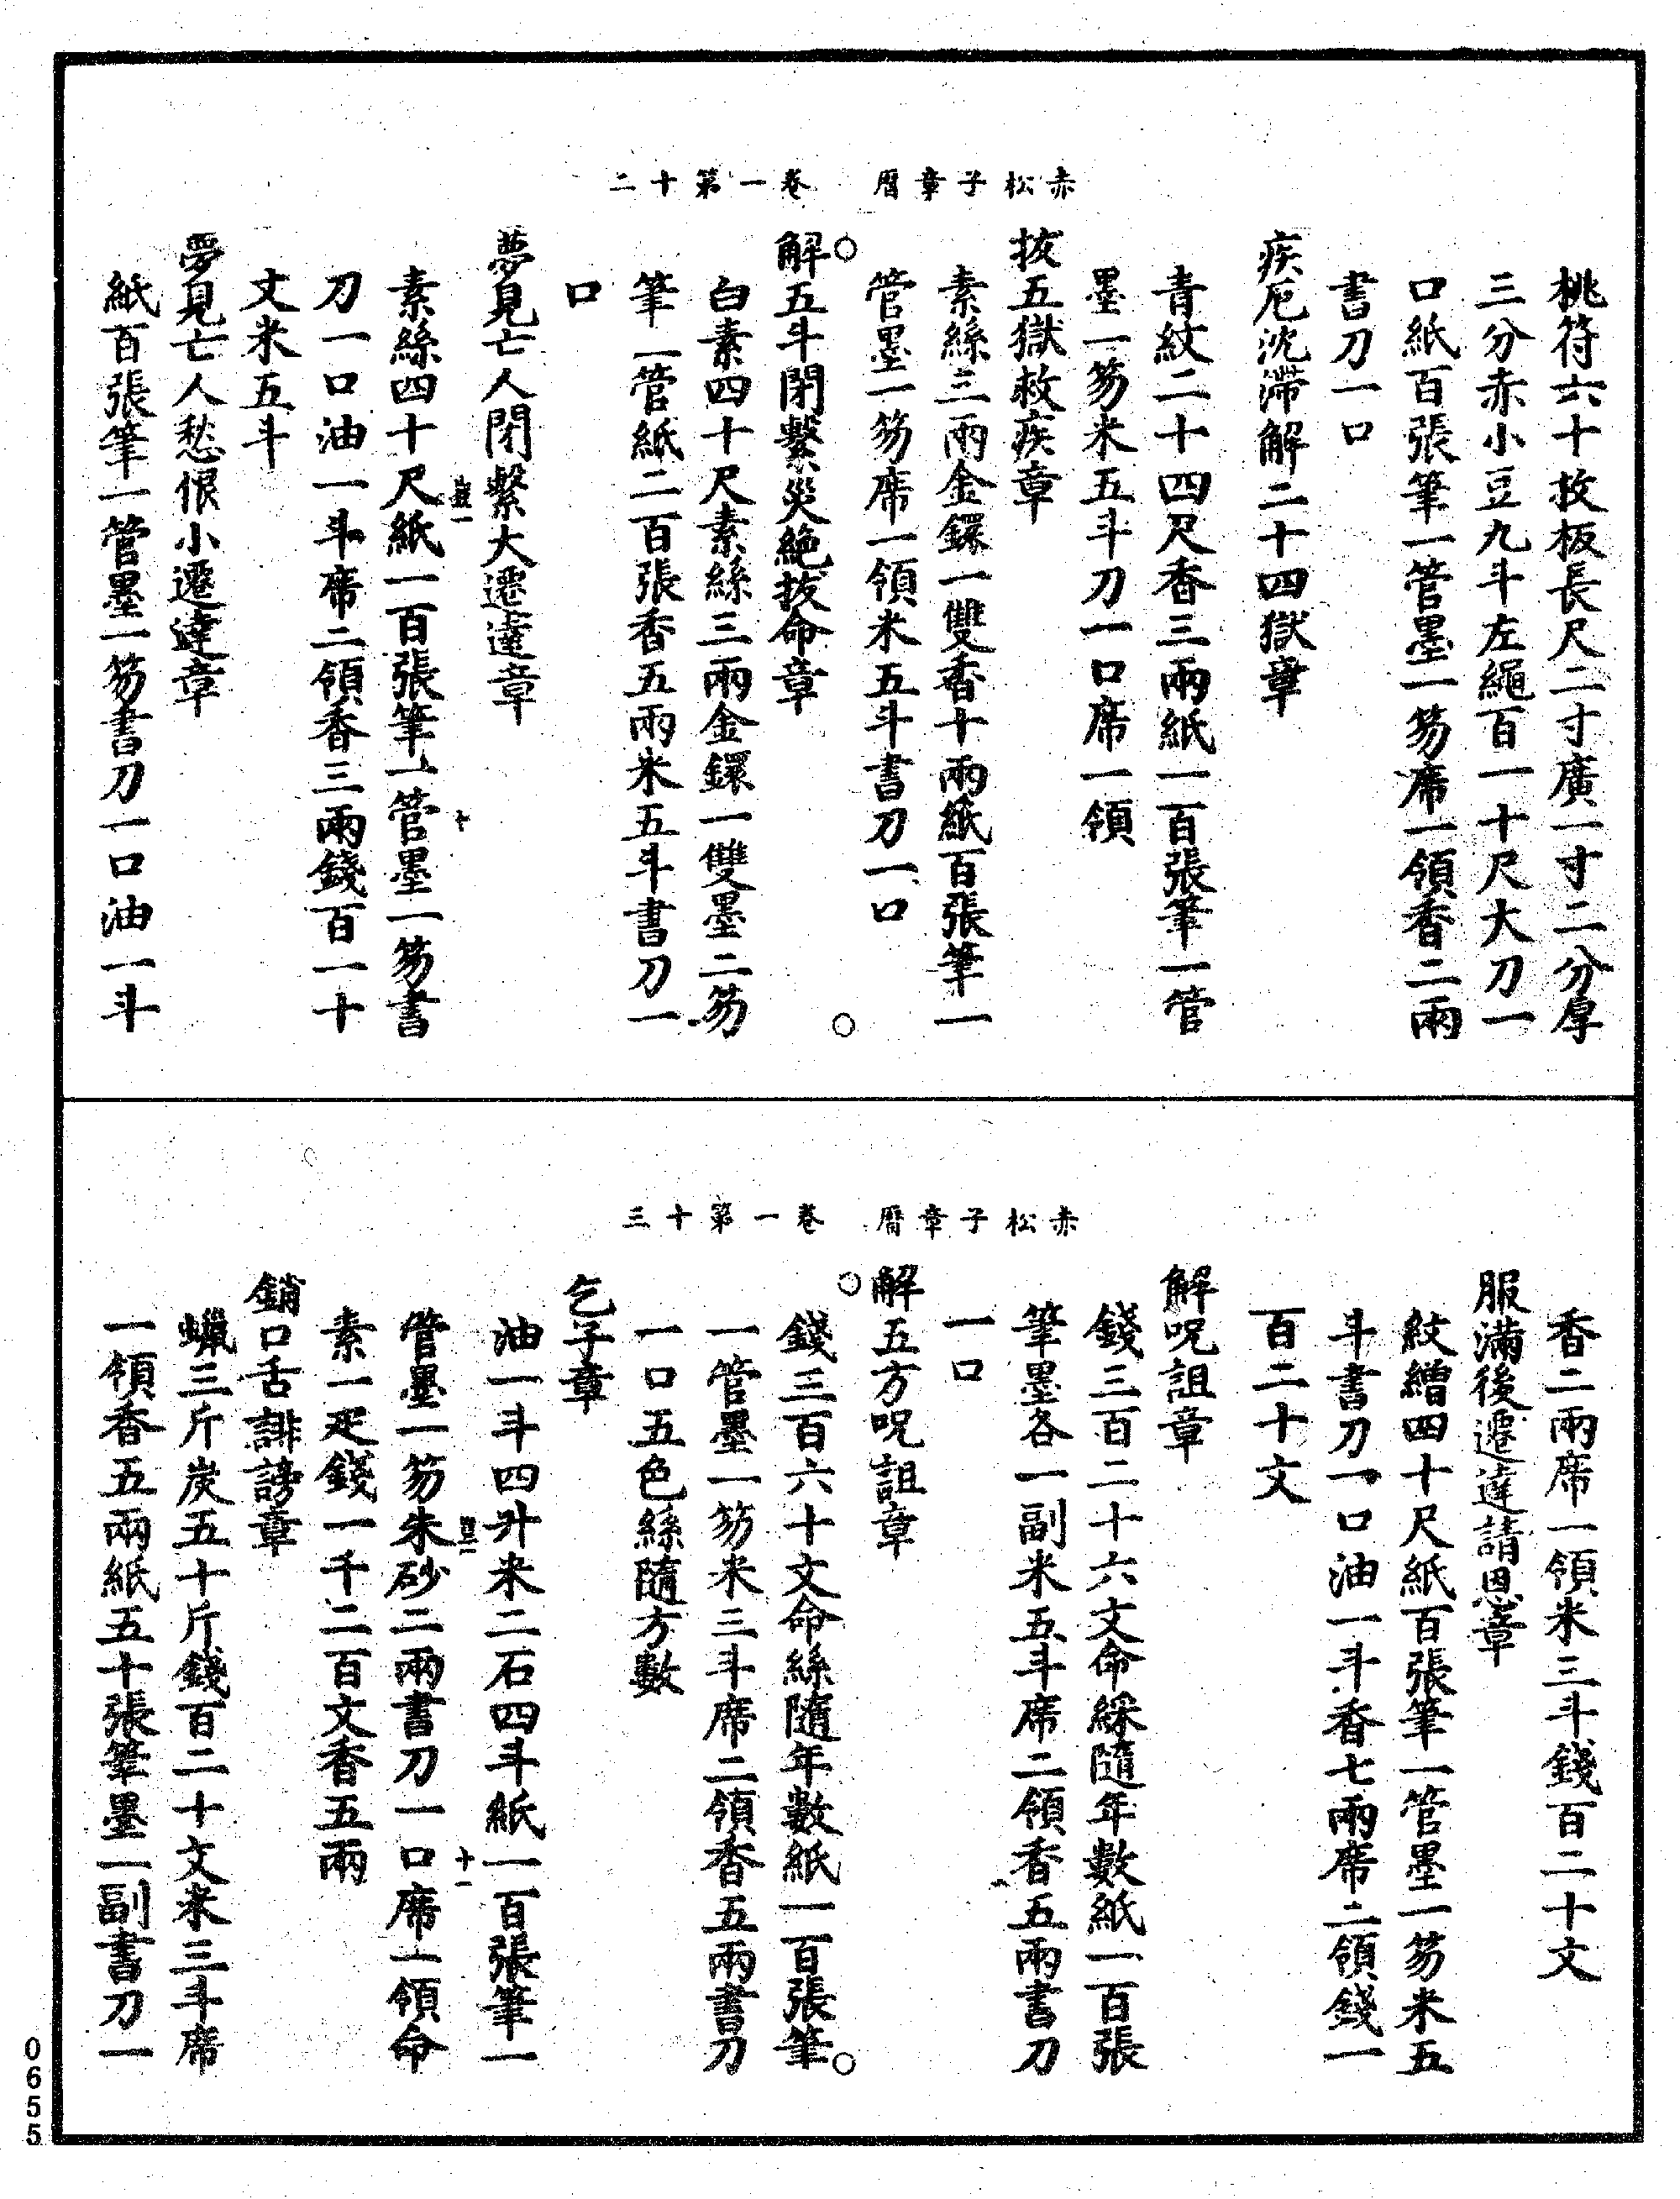 赤松子章曆　卷一第十二
桃符六十枚板長尺二寸廣一寸二分厚
三分赤小豆九斗左繩百一十尺大刀一
口紙百張筆一管墨一笏席一領香二兩
書刀一口
疾厄沈滯解二十四獄章
青紋二十四尺香三兩紙一百張筆一管
墨一笏米五斗刀一口席一領
拔五獄救疾章
素絲三兩金鐶一雙香十兩紙百張筆一
管墨一笏席一領米五斗書刀一口
解五斗閉繫災絕拔命章
白素四十尺素絲三兩金鐶一雙墨二笏
筆一管紙二百張香五兩米五斗書刀一
口
夢見亡人閉繫大遷達章
素絲四十尺紙一百張筆一管墨一笏書
刀一口油一斗席二領香三兩錢百一十
文米五斗
夢見亡人愁恨小遷達章
紙百張筆一管墨一笏書刀一口油一斗
赤松子章曆　卷一第十三
香二兩席一領米三斗錢百二十文
服滿後遷達請恩章
紋繒四十尺紙百張筆一管墨一笏米五
斗書刀一口油一斗香七兩席二領錢一
百二十文
解呪詛章
錢三百二十六文命綵隨年數紙一百張
筆墨各一副米五斗席二領香五兩書刀
一口
解五方呪詛章
錢三百六十文命絲隨年數紙一百張筆
一管墨一笏米三斗席二領香五兩書刀
一口五色絲隨方數
乞子章
油一斗四升米二石四斗紙一百張筆一
管墨一笏朱砂二兩書刀一口席一領命
十一
素一疋錢一千二百文香五兩
銷口舌誹謗章
蠟三斤炭五十斤錢百二十文米三斗席
一領香五兩紙五十張筆墨一副書刀一
0655